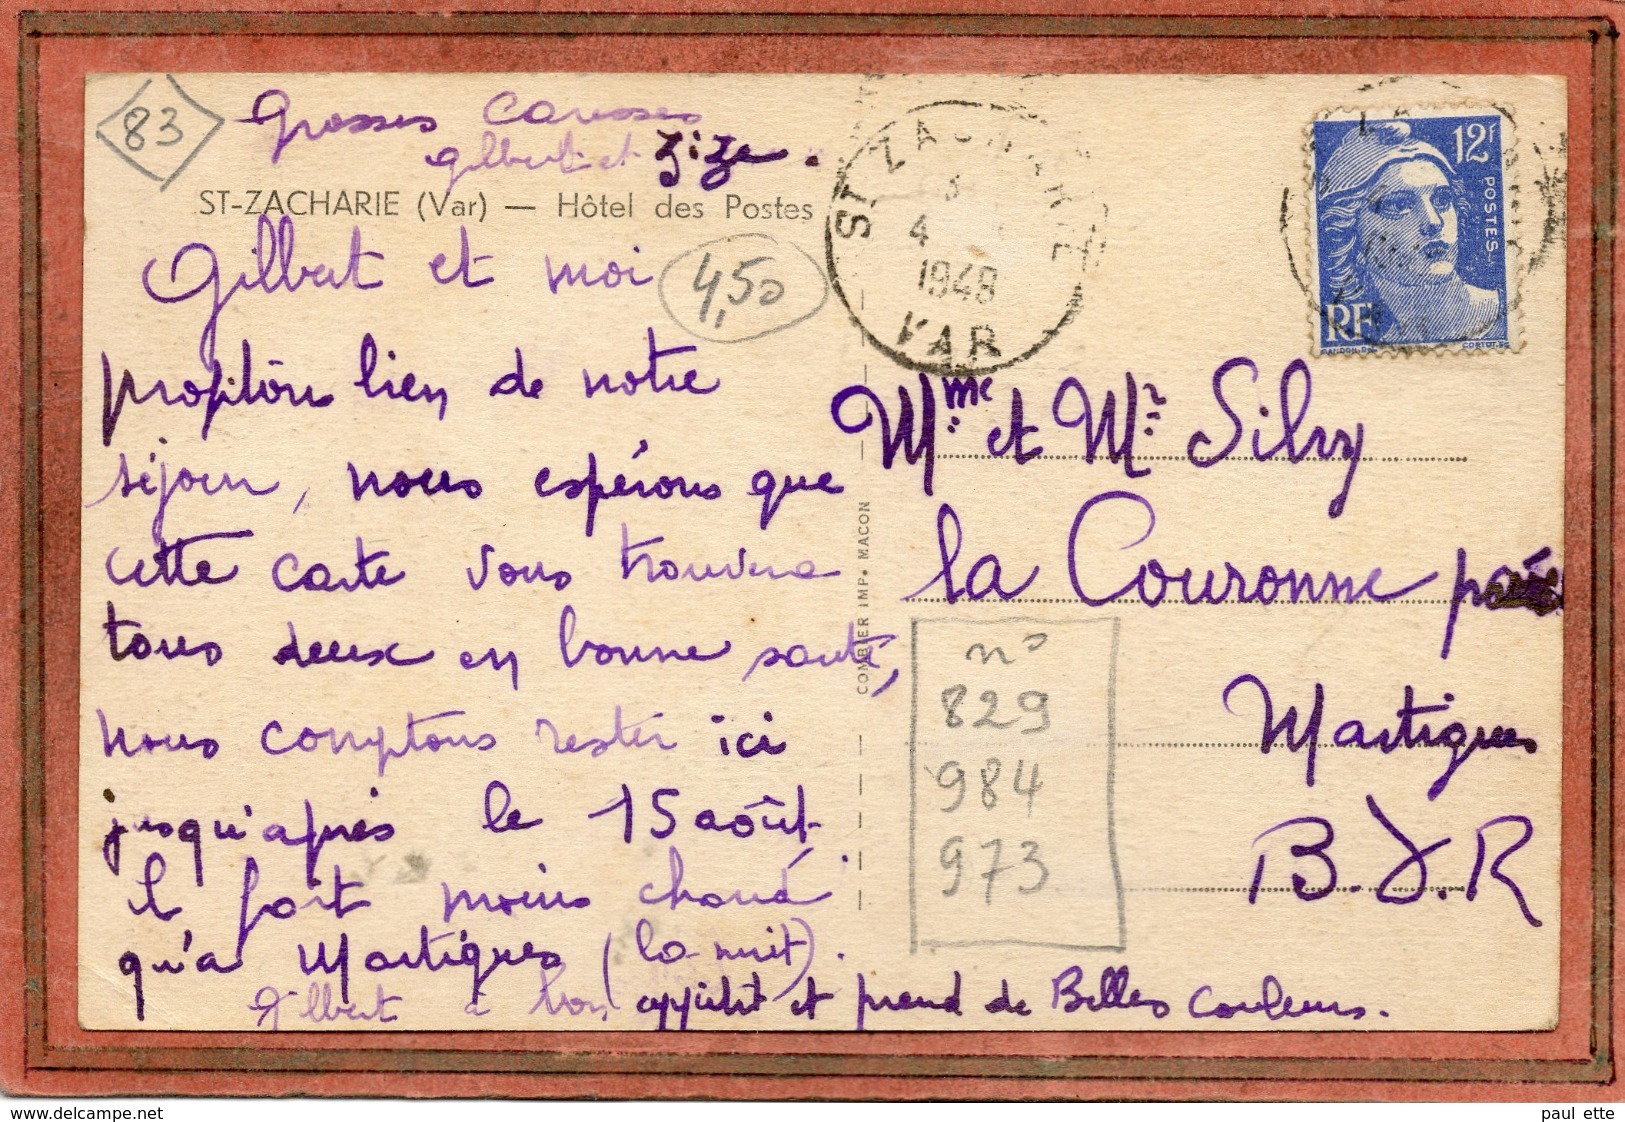 83
Grosses Caresses
Gilbert et Zize.
ST-ZACHARIE (Var) — Hôtel des Postes
Gilbert et moi
4,50
profitons bien de notre
séjour, nous espérons que
cette carte vous trouvera
tous deux en bonne santé,
nous comptons rester ici
jusqu'après le 15 août
il fait moins chaud
qu'à Martigues (la nuit).
Gilbert à bon appétit et prend de Belles couleurs.
COMBIER IMP. MACON
ST ZACHARIE
4
1948
VAR
12F
POSTES
RF
GANDON DEL
CORTOT SC
Mme et Mr Silvy
la Couronne par
Martigues
B.D.R
no
829
984
973
www.delcampe.net
paul ette